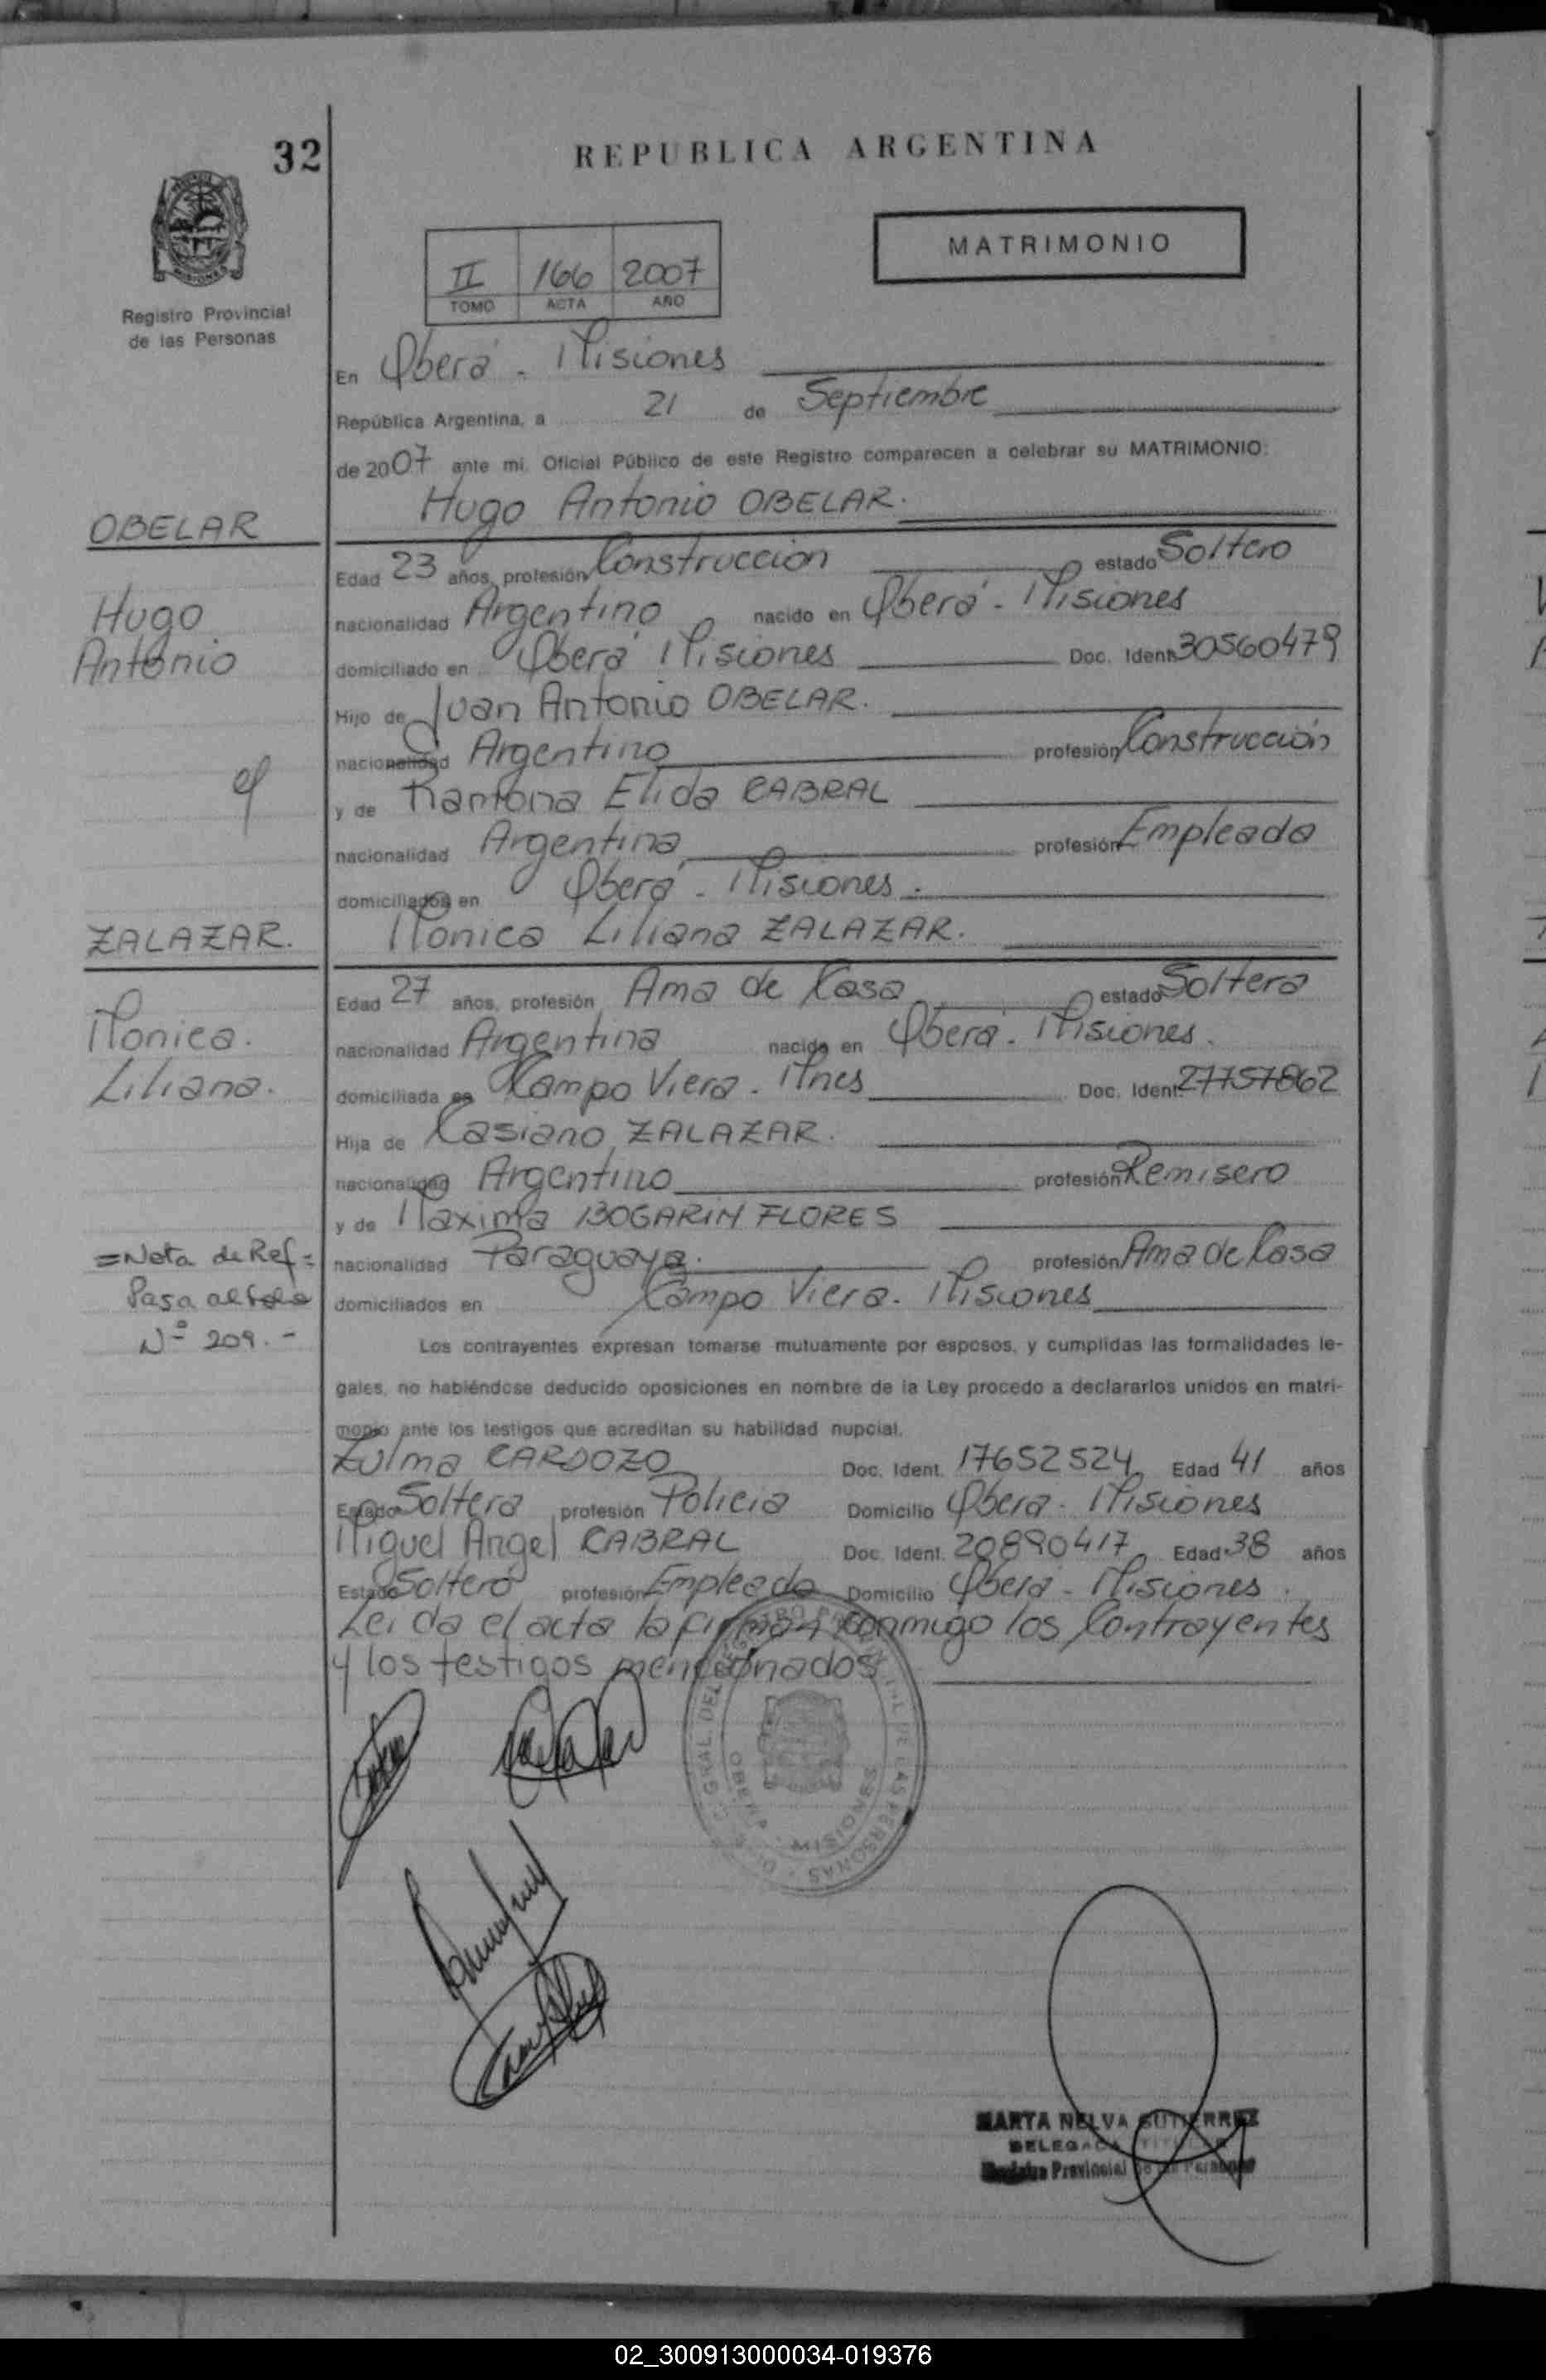 32
REPUBLICA ARGENTINA
MATRIMONIO
II 166 2007
TOMO ACTA AÑO
Registro Provincial
de las Personas
En Oberá - Misiones
República Argentina, a 21 de Septiembre
de 2007 ante mi, Oficial Público de este Registro comparecen a celebrar su MATRIMONIO:
Hugo Antonio OBELAR.
OBELAR
Edad 23 años, profesión Construccion estado Soltero
Hugo
nacionalidad Argentino nacido en Oberá - Misiones
Antonio
domiciliado en Oberá Misiones Doc. Ident. 30560479
Hijo de Juan Antonio OBELAR.
nacionalidad Argentino profesión Construcción
y
y de Ramona Elida CABRAL
nacionalidad Argentina profesión Empleada
domiciliados en Oberá - Misiones.
ZALAZAR.
Monica Liliana ZALAZAR.
Edad 27 años, profesión Ama de Casa estado Soltera
Monica.
nacionalidad Argentina nacida en Oberá - Misiones.
Liliana.
domiciliada en Campo Viera - Mnes Doc. Ident. 27757862
Hija de Casiano ZALAZAR.
nacionalidad Argentino profesión Remisero
y de Maxima BOGARIN FLORES
=Nota de Ref=
nacionalidad Paraguaya. profesión Ama de Casa
Pasa al folio
domiciliados en Campo Viera - Misiones
Nº 209.-
Los contrayentes expresan tomarse mutuamente por esposos, y cumplidas las formalidades le-
gales, no habiéndose deducido oposiciones en nombre de la Ley procedo a declararlos unidos en matri-
monio ante los testigos que acreditan su habilidad nupcial.
Zulma CARDOZO Doc. Ident. 17652524 Edad 41 años
Estado Soltera profesión Policia Domicilio Oberá - Misiones
Miguel Angel CABRAL Doc. Ident. 20890417 Edad 38 años
Estado Soltero profesión Empleado Domicilio Oberá - Misiones.
Leida el acta la firman conmigo los Contrayentes
y los testigos mencionados
GRAL. DEL REGISTRO PROVINCIAL DE LAS PERSONAS
OBERA - MISIONES
MARTA NELVA GUTIERREZ
DELEGADA TITULAR
Registro Provincial de las Personas
02_300913000034-019376